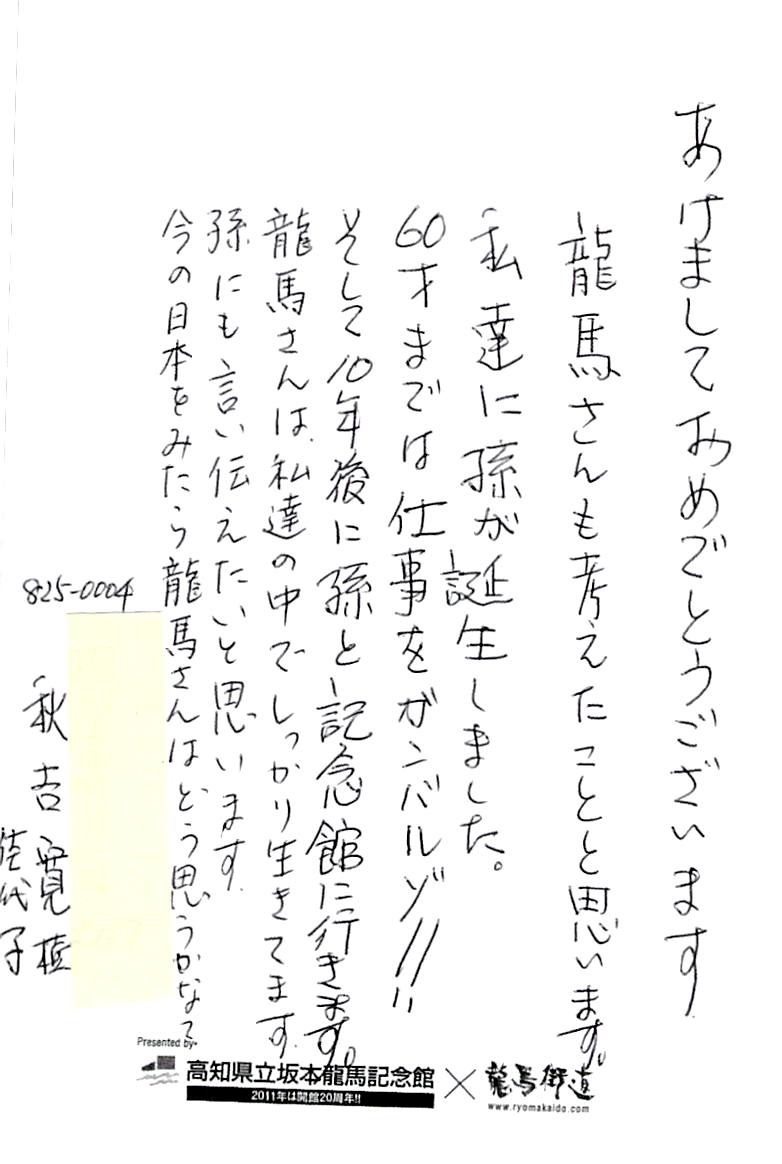 あけましておめでとうございます
龍馬さんも考えたことと思います。
私達に孫が誕生しました。
60才までは仕事をガンバルゾ!!
そして10年後に孫と記念館に行きます。
龍馬さんは、私達の中でしっかり生きてます
孫にも言い伝えたいと思います
今の日本をみたら龍馬さんはどう思うかなって
825-0004
秋吉 寛樹
佳代子
Presented by
高知県立坂本龍馬記念館×龍馬街道
2011年は開館20周年!!
www.ryomakaido.com